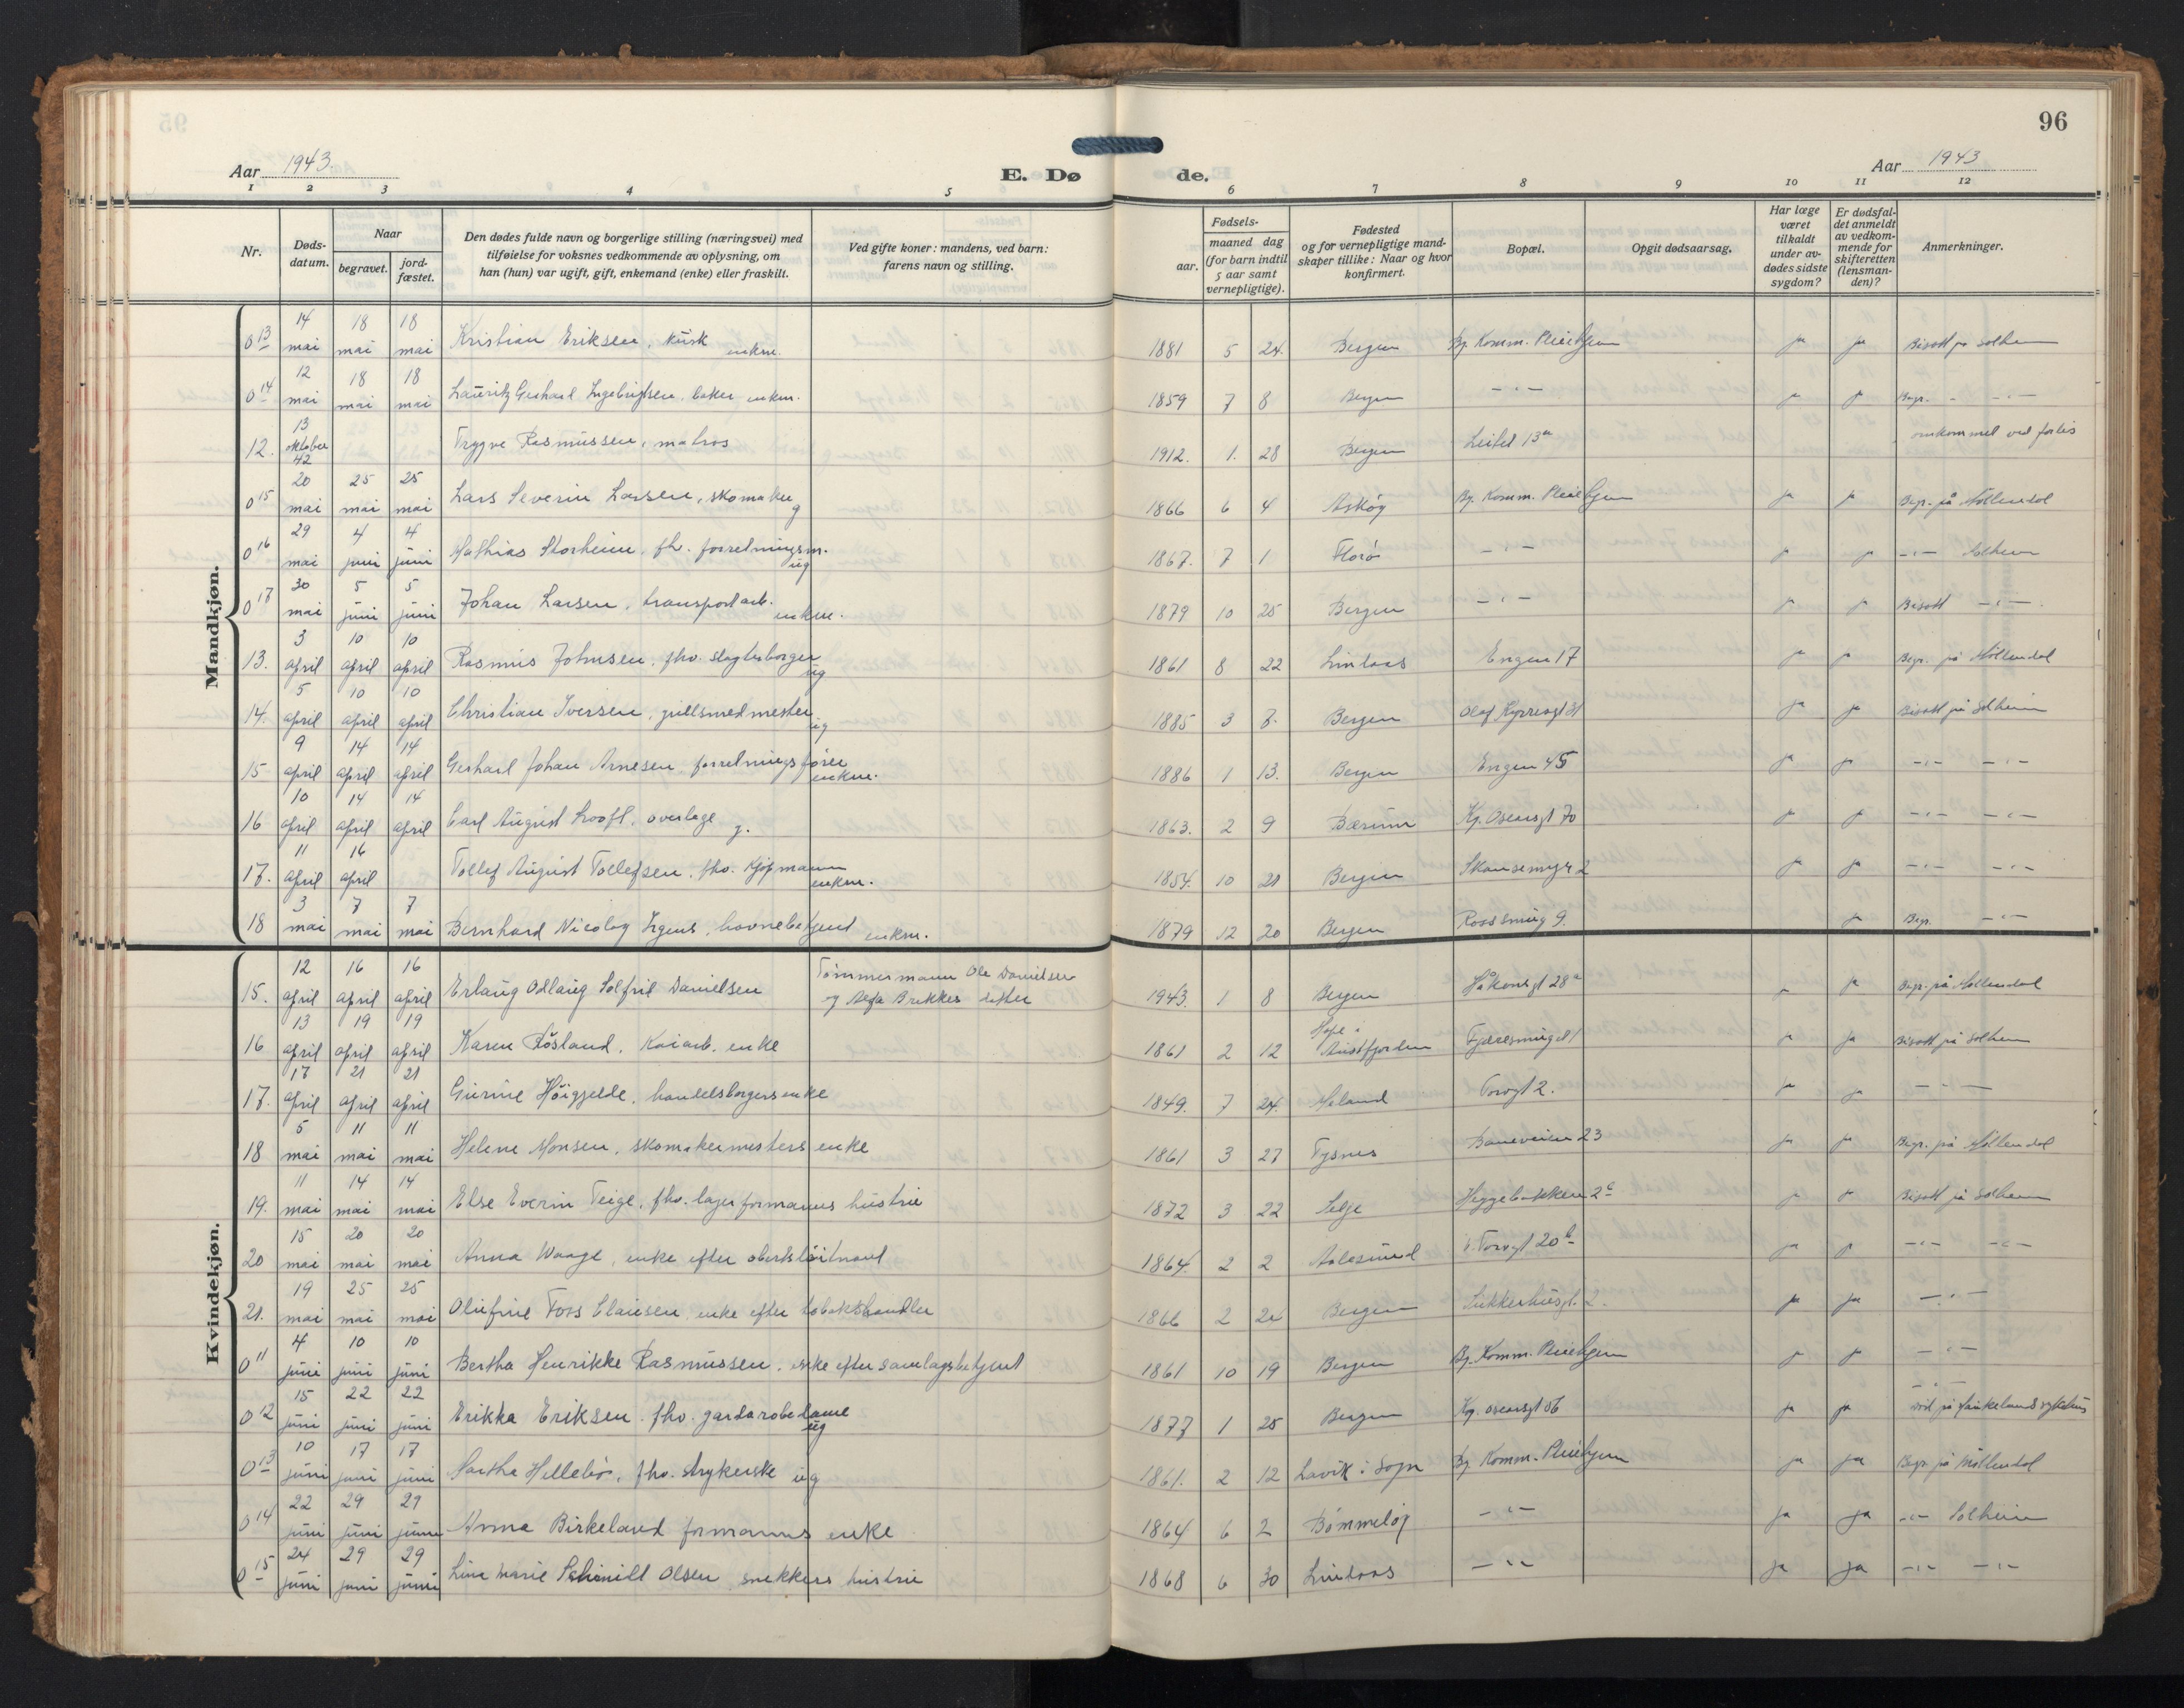 96
Aar 1943.
E. Dø
de.
Aar 1943
1 2 3 4 5 6 7 8 9 10 11 12
Nr.
Døds-
datum.
Naar
begravet.
jord-
fæstet.
Den dødes fulde navn og borgerlige stilling (næringsvei) med
tilføielse for voksnes vedkommende av oplysning, om
han (hun) var ugift, gift, enkemand (enke) eller fraskilt.
Ved gifte koner: mandens, ved barn:
farens navn og stilling.
Fødsels-
aar.
maaned dag
(for barn indtil
5 aar samt
vernepligtige).
Fødested
og for vernepligtige mand-
skaper tillike: Naar og hvor
konfirmert.
Bopæl.
Opgit dødsaarsag.
Har læge
været
tilkaldt
under av-
dødes sidste
sygdom?
Er dødsfal-
det anmeldt
av vedkom-
mende for
skifteretten
(lensman-
den)?
Anmerkninger.
Mandkjøn.
013 14 mai 18 mai 18 mai Kristian Eriksen, kusk enkm. 1881 5 24. Bergen Bg. Komm. Pleiehjem ja ja Bisatt på Solheim
014 12 mai 18 mai 18 mai Lauritz Gerhard Ingebrigtsen, baker enkm. 1859 7 8 Bergen -"- ja ja Begr. - -"-
12. 13 oktober 42 Trygve Rasmussen, matros 1912. 1. 28 Bergen Leitet 13a omkommet ved forlis
015 20 mai 25 mai 25 mai Lars Severin Larsen, skomaker g 1866 6 4 Askøy Bg. Komm. Pleiehjem ja ja Begr. på Møllendal
016 29 mai 4 juni 4 juni Mathias Storheim, fh. forretningsm. ug 1867. 7 1 Florø -"- ja ja -"- Solheim
017 30 mai 5 juni 5 juni Johan Larsen, transportarb. enkm. 1879 10 25 Bergen -"- ja ja Bisatt -"-
13. 3 april 10 april 10 april Rasmus Johnsen, fhv. slagterborger ug 1861 8 22 Lindaas Engen 17 ja ja Begr. på Møllendal
14. 5 april 10 april 10 april Christian Iversen, gullsmedmester ug 1885 3 7. Bergen Olaf Kyrresgt 31 ja ja Bisatt på Solheim
15 9 april 14 april 14 april Gerhard Johan Arnesen, forretningsfører enkm. 1886 1 13. Bergen Engen 45 ja ja -"- -"-
16 10 april 14 april 14 april Carl August Looft, overlæge g. 1863. 2 9 Bærum Kg. Oscarsgt 70 ja ja -"- -"-
17. 11 april 16 april Tollef August Tollefsen, fhv. kjøpmann enkm. 1854. 10 21 Bergen Skansemyr 2 ja ja -"- -"-
18 3 mai 7 mai 7 mai Bernhard Nicolay Irgens, havnebetjent enkm. 1879 12 20 Bergen Rosesmug 9. ja Begr. -"-
Kvindekjøn.
15. 12 april 16 april 16 april Erlaug Odlaug Solfrid Danielsen Tømmermann Ole Danielsen
og Brekkes datter 1943. 1 8 Bergen Håkonsgt 28a ja ja Begr. på Møllendal
16. 13 april 19 april 19 april Karen Røsland, kaiarb. enke 1861 2 12 Hope i
Austfjorden ja ja Bisatt på Solheim
17. 17 april 21 april 21 april Gurine Høigjelde, handelsborgers enke 1849. 7 24. Meland Torvgt 2. ja ja -"-
18 5 mai 11 mai 11 mai Helene Monsen, skomakermesters enke 1861 3 27 Tysnes Baneveien 23 ja ja Begr. på Møllendal
19. 11 mai 14 mai 14 mai Else Everin Teige, fhv. lagerformanns hustru 1872 3 22 Selje Heggebakken 2c ja ja Bisatt på Solheim
20 15 mai 20 mai 20 mai Anna Waage, enke efter oberstløitnant 1864. 2 2 Aalesund Torvgt 20b ja ja -"- -"-
21. 19 mai 25 mai 25 mai Olufine Foss Clausen, enke efter tobakshandler 1866 2 24 Bergen Sukkerhusgt. 2. ja ja -"-
011 4 juni 10 juni 10 juni Bertha Henrikke Rasmussen, enke efter samlagsbetjent 1861 10 19 Bergen Bg. Komm. Pleiehjem ja ja -"-
012 15 juni 22 juni 22 juni Erikka Eriksen, fhv. gardarobedame ug 1877 1 25 Bergen Kg. Oscarsgt 56 ja ja -"-
død på Haukeland sykehus
013 10 juni 17 juni 17 juni Martha Hellebø, fhv. strykerske ug 1861. 2 12 Lavik i Sogn Bg. Komm. Pleiehjem ja ja Begr på Møllendal
014 22 juni 29 juni 29 juni Anna Birkeland formanns enke 1864 6 2 Bømmeløy -"- ja ja -"- Solheim
015 24 juni 29 juni 29 juni Lina Marie Schmidt Olsen, snekkers hustru 1868 6 30 Lindaas -"- ja ja -"- -"-